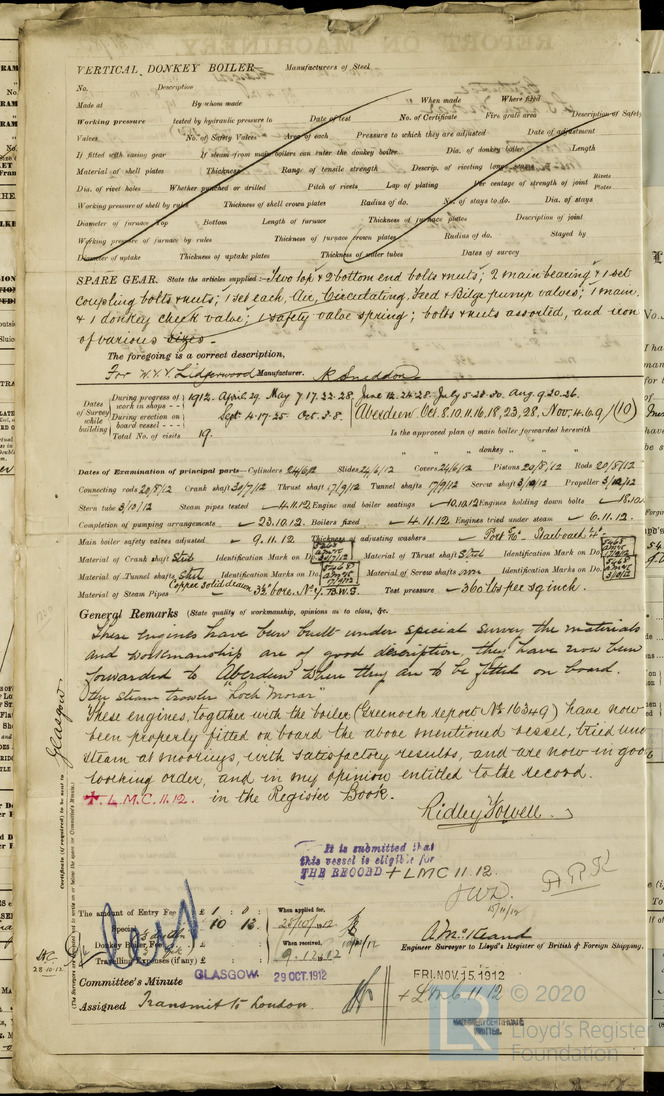 VERTICAL DONKEY BOILER Manufacturers of Steel
No. Description
Made at By whom made When made Where fixed
Working pressure tested by hydraulic pressure to Date of test No. of Certificate Fire grate area Description of Safety
Valves No. of Safety Valves Area of each Pressure to which they are adjusted Date of adjustment
If fitted with easing gear If steam from main boilers can enter the donkey boiler Dia. of donkey boiler Length
Material of shell plates Thickness Range of tensile strength Descrip. of riveting long. seams
Dia. of rivet holes Whether punched or drilled Pitch of rivets Lap of plating Per centage of strength of joint Rivets Plates
Working pressure of shell by rules Thickness of shell crown plates Radius of do. No. of stays to do. Dia. of stays
Diameter of furnace Top Bottom Length of furnace Thickness of furnace plates Description of joint
Working pressure of furnace by rules Thickness of furnace crown plates Radius of do. Stayed by
Diameter of uptake Thickness of uptake plates Thickness of water tubes Dates of survey
SPARE GEAR. State the articles supplied:— Two top & 2 bottom end bolts & nuts; 2 main bearing & 1 set
coupling bolts & nuts; 1 set each, Air, Circulating, Feed & Bilge pump valves; 1 main
& 1 donkey check valve; 1 safety valve spring; bolts & nuts assorted, and iron
of various sizes.
The foregoing is a correct description,
For W.V.V. Lidgerwood Manufacturer. N. Sneddon
Dates of Survey while building
During progress of work in shops - - 1912. April 29. May 7.17.22.28. June 12.24.28. July 5.23.30. Aug. 9.20.26.
During erection on board vessel - - - Sept 4.17.25. Oct. 3.8. Aberdeen Oct. 8.10.11.16.18,23,28, Nov. 4.6.9/(10)
Total No. of visits 19. Is the approved plan of main boiler forwarded herewith
" " " donkey " " "
Dates of Examination of principal parts—Cylinders 24/6/12 Slides 24/6/12 Covers 24/6/12 Pistons 20/8/12 Rods 20/8/12
Connecting rods 20/8/12 Crank shaft 30/7/12 Thrust shaft 17/9/12 Tunnel shafts 17/9/12 Screw shaft 3/10/12 Propeller 3/10/12
Stern tube 3/10/12 Steam pipes tested 4.11.12 Engine and boiler seatings 10.10.12 Engines holding down bolts 18.10.
Completion of pumping arrangements 23.10.12. Boilers fixed 4.11.12 Engines tried under steam 6.11.12.
Main boiler safety valves adjusted 9.11.12 Thickness of adjusting washers Port Starboard
Material of Crank shaft Steel Identification Mark on Do. Material of Thrust shaft Steel Identification Mark on Do.
Material of Tunnel shafts Steel Identification Marks on Do. Material of Screw shafts iron Identification Marks on Do.
Material of Steam Pipes Copper solid drawn 3½ bore. B.W.G. Test pressure 360 lbs per sq inch.
General Remarks (State quality of workmanship, opinions as to class, &c.
These engines have been built under special survey the materials
and workmanship are of good description, they have now been
forwarded to Aberdeen where they are to be fitted on board.
the steam trawler "Loch Morar"
These engines, together with the boiler (Greenock report No 16349) have now
been properly fitted on board the above mentioned vessel, tried und
steam at moorings, with satisfactory results, and are now in good
working order, and in my opinion entitled to the record.
+ L.M.C. 11.12. in the Register Book.
Ridley Fowell.
It is submitted that
this vessel is eligible for
THE RECORD + LMC 11.12.
15/11/12
Glasgow
Certificate (if required) to be sent to
The amount of Entry Fee £ 1 : 0 : When applied for,
Special £ 10 : 13. 28/10/1912
Donkey Boiler Fee £ When received,
Travelling Expenses (if any) £ 9.12.12
Engineer Surveyor to Lloyd's Register of British & Foreign Shipping.
GLASGOW 29 OCT. 1912
FRI. NOV. 15. 1912
28.10.12
Committee's Minute
+ LMC 11.12
Assigned Transmit to London.
MACHINERY CERTIFICATE
WRITTEN.
© 2020
LR
Lloyd's Register
Foundation